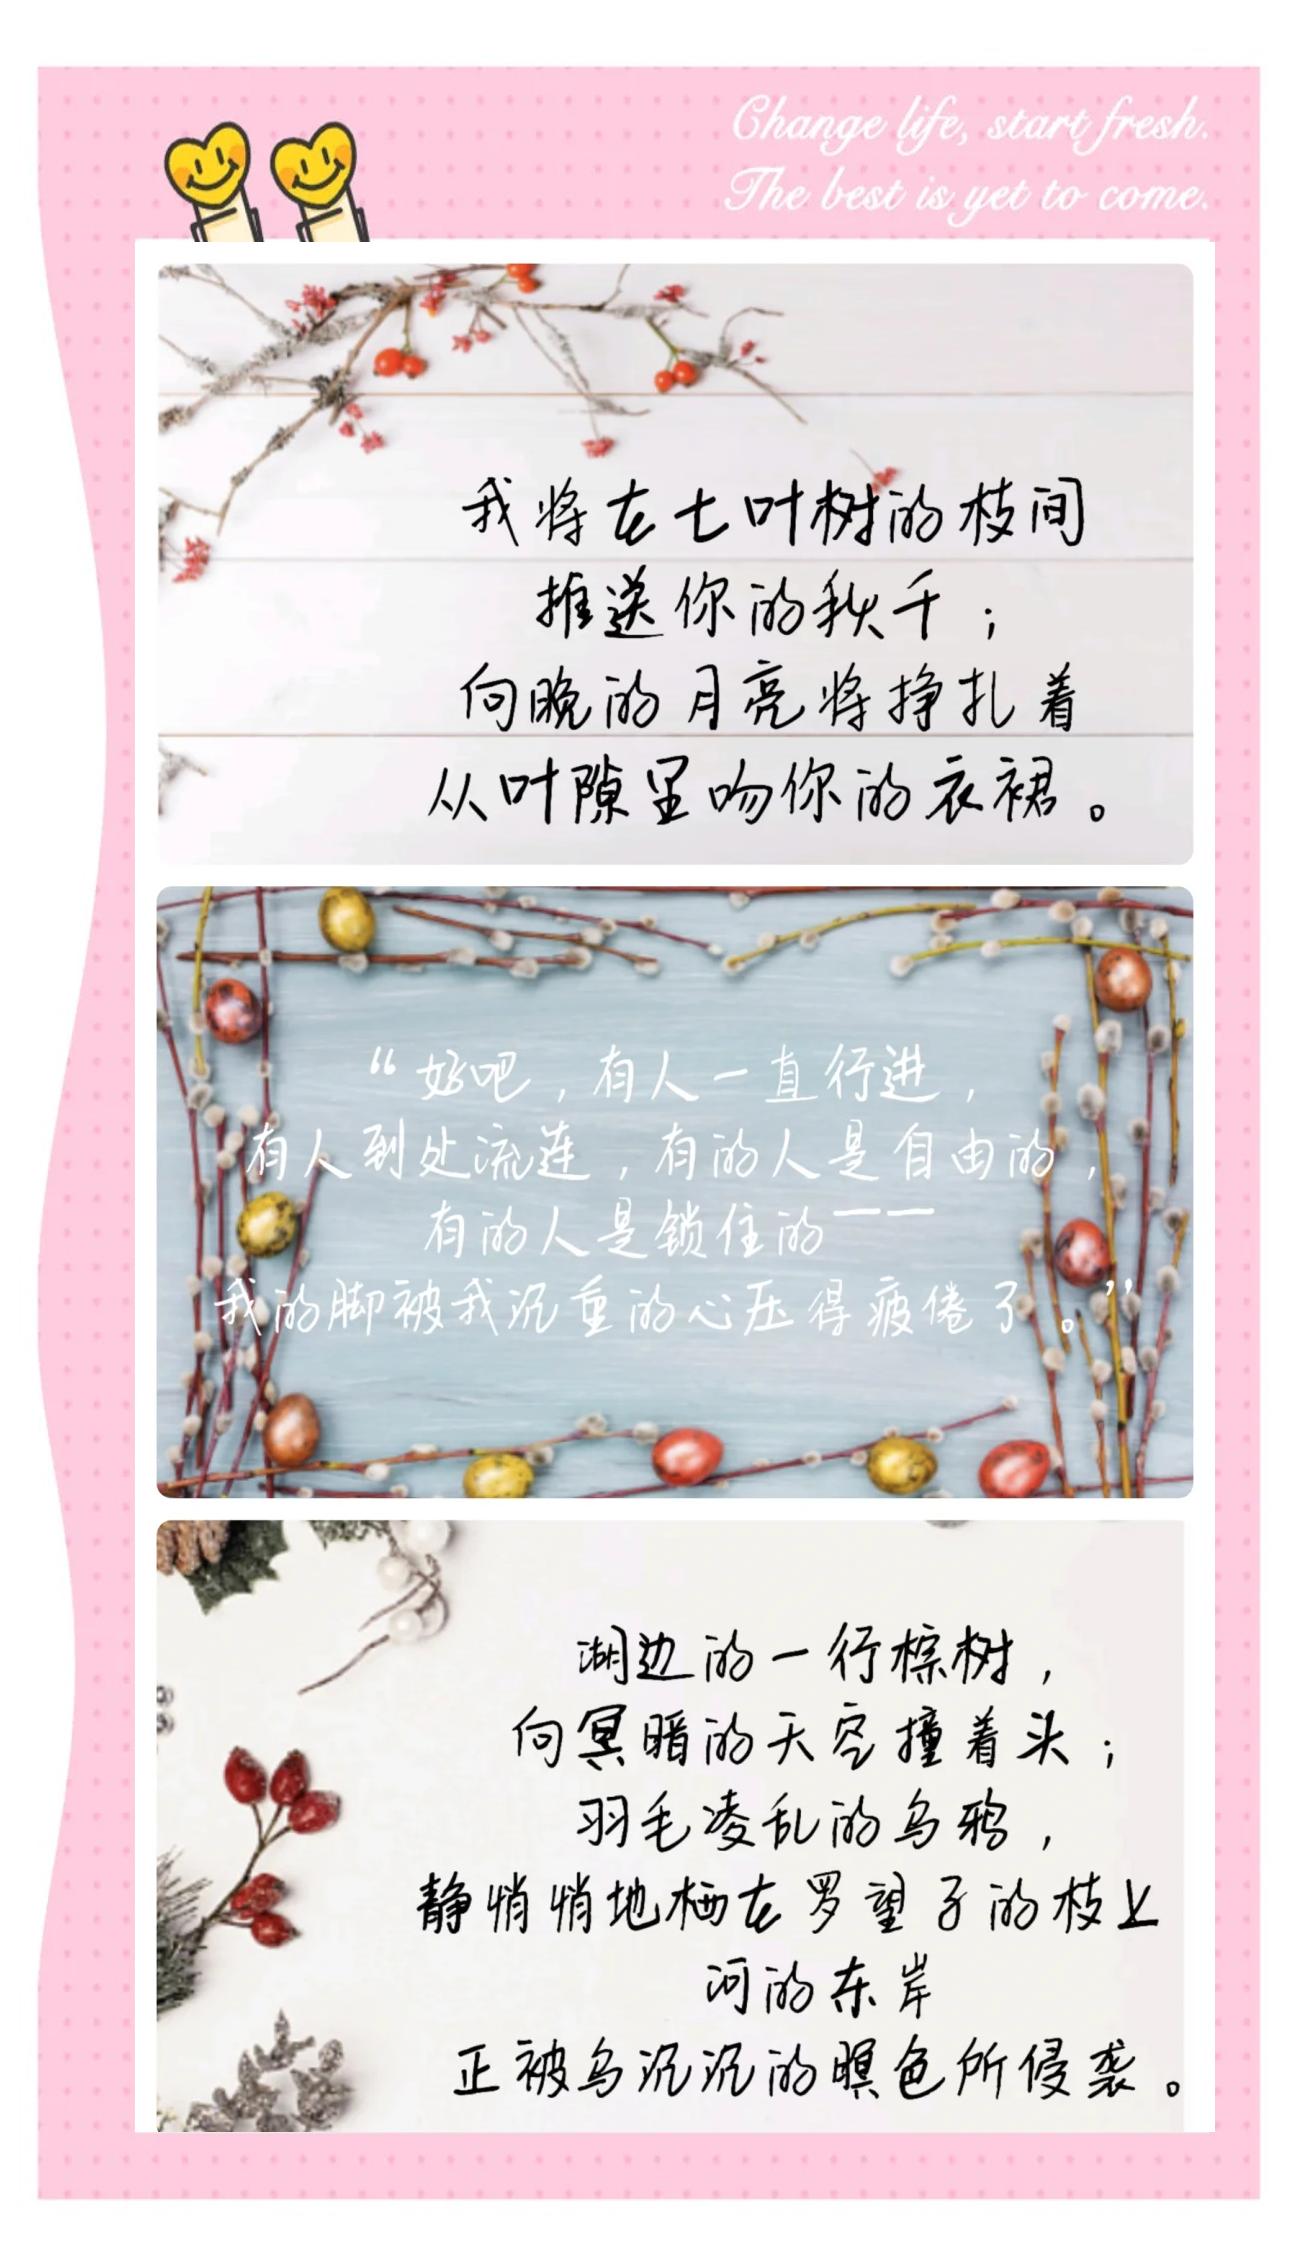 Change life, start fresh.
The best is yet to come.
我将在七叶树的枝间
推送你的秋千；
向晚的月亮将挣扎着
从叶隙里吻你的衣裙。
“好吧，有人一直行进，
有人到处流连，有的人是自由的，
有的人是锁住的——
我的脚被我沉重的心压得疲倦了。”
湖边的一行棕树，
向冥暗的天空撞着头；
羽毛凌乱的乌鸦，
静悄悄地栖在罗望子的枝上
河的东岸
正被乌沉沉的暝色所侵袭。